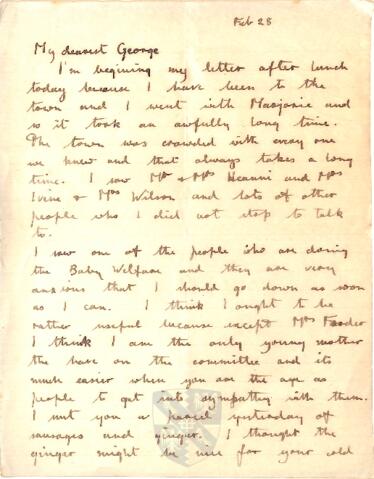 Feb 28
My dearest George
I'm begining my letter after lunch
today because I have been to the
town and I went with Marjorie and
so it took an awfully long time.
The town was crowded with every one
we knew and that always takes a long
time. I saw Mr & Mrs and Mrs
Irvine & Mrs Wilson and lots of other
people who I did not stop to talk
to.
I saw one of the people who are doing
the Baby Welfare and they are very
anxious that I should go down as soon
as I can. I think I ought to be
rather useful because except Mrs
I think I am the only young mother
the have on the committee and its
much easier when you are the age as
people to get into sympathy with them.
I sent you a parcel yesterday of
sausages and ginger. I thought the
ginger might be nice for your cold